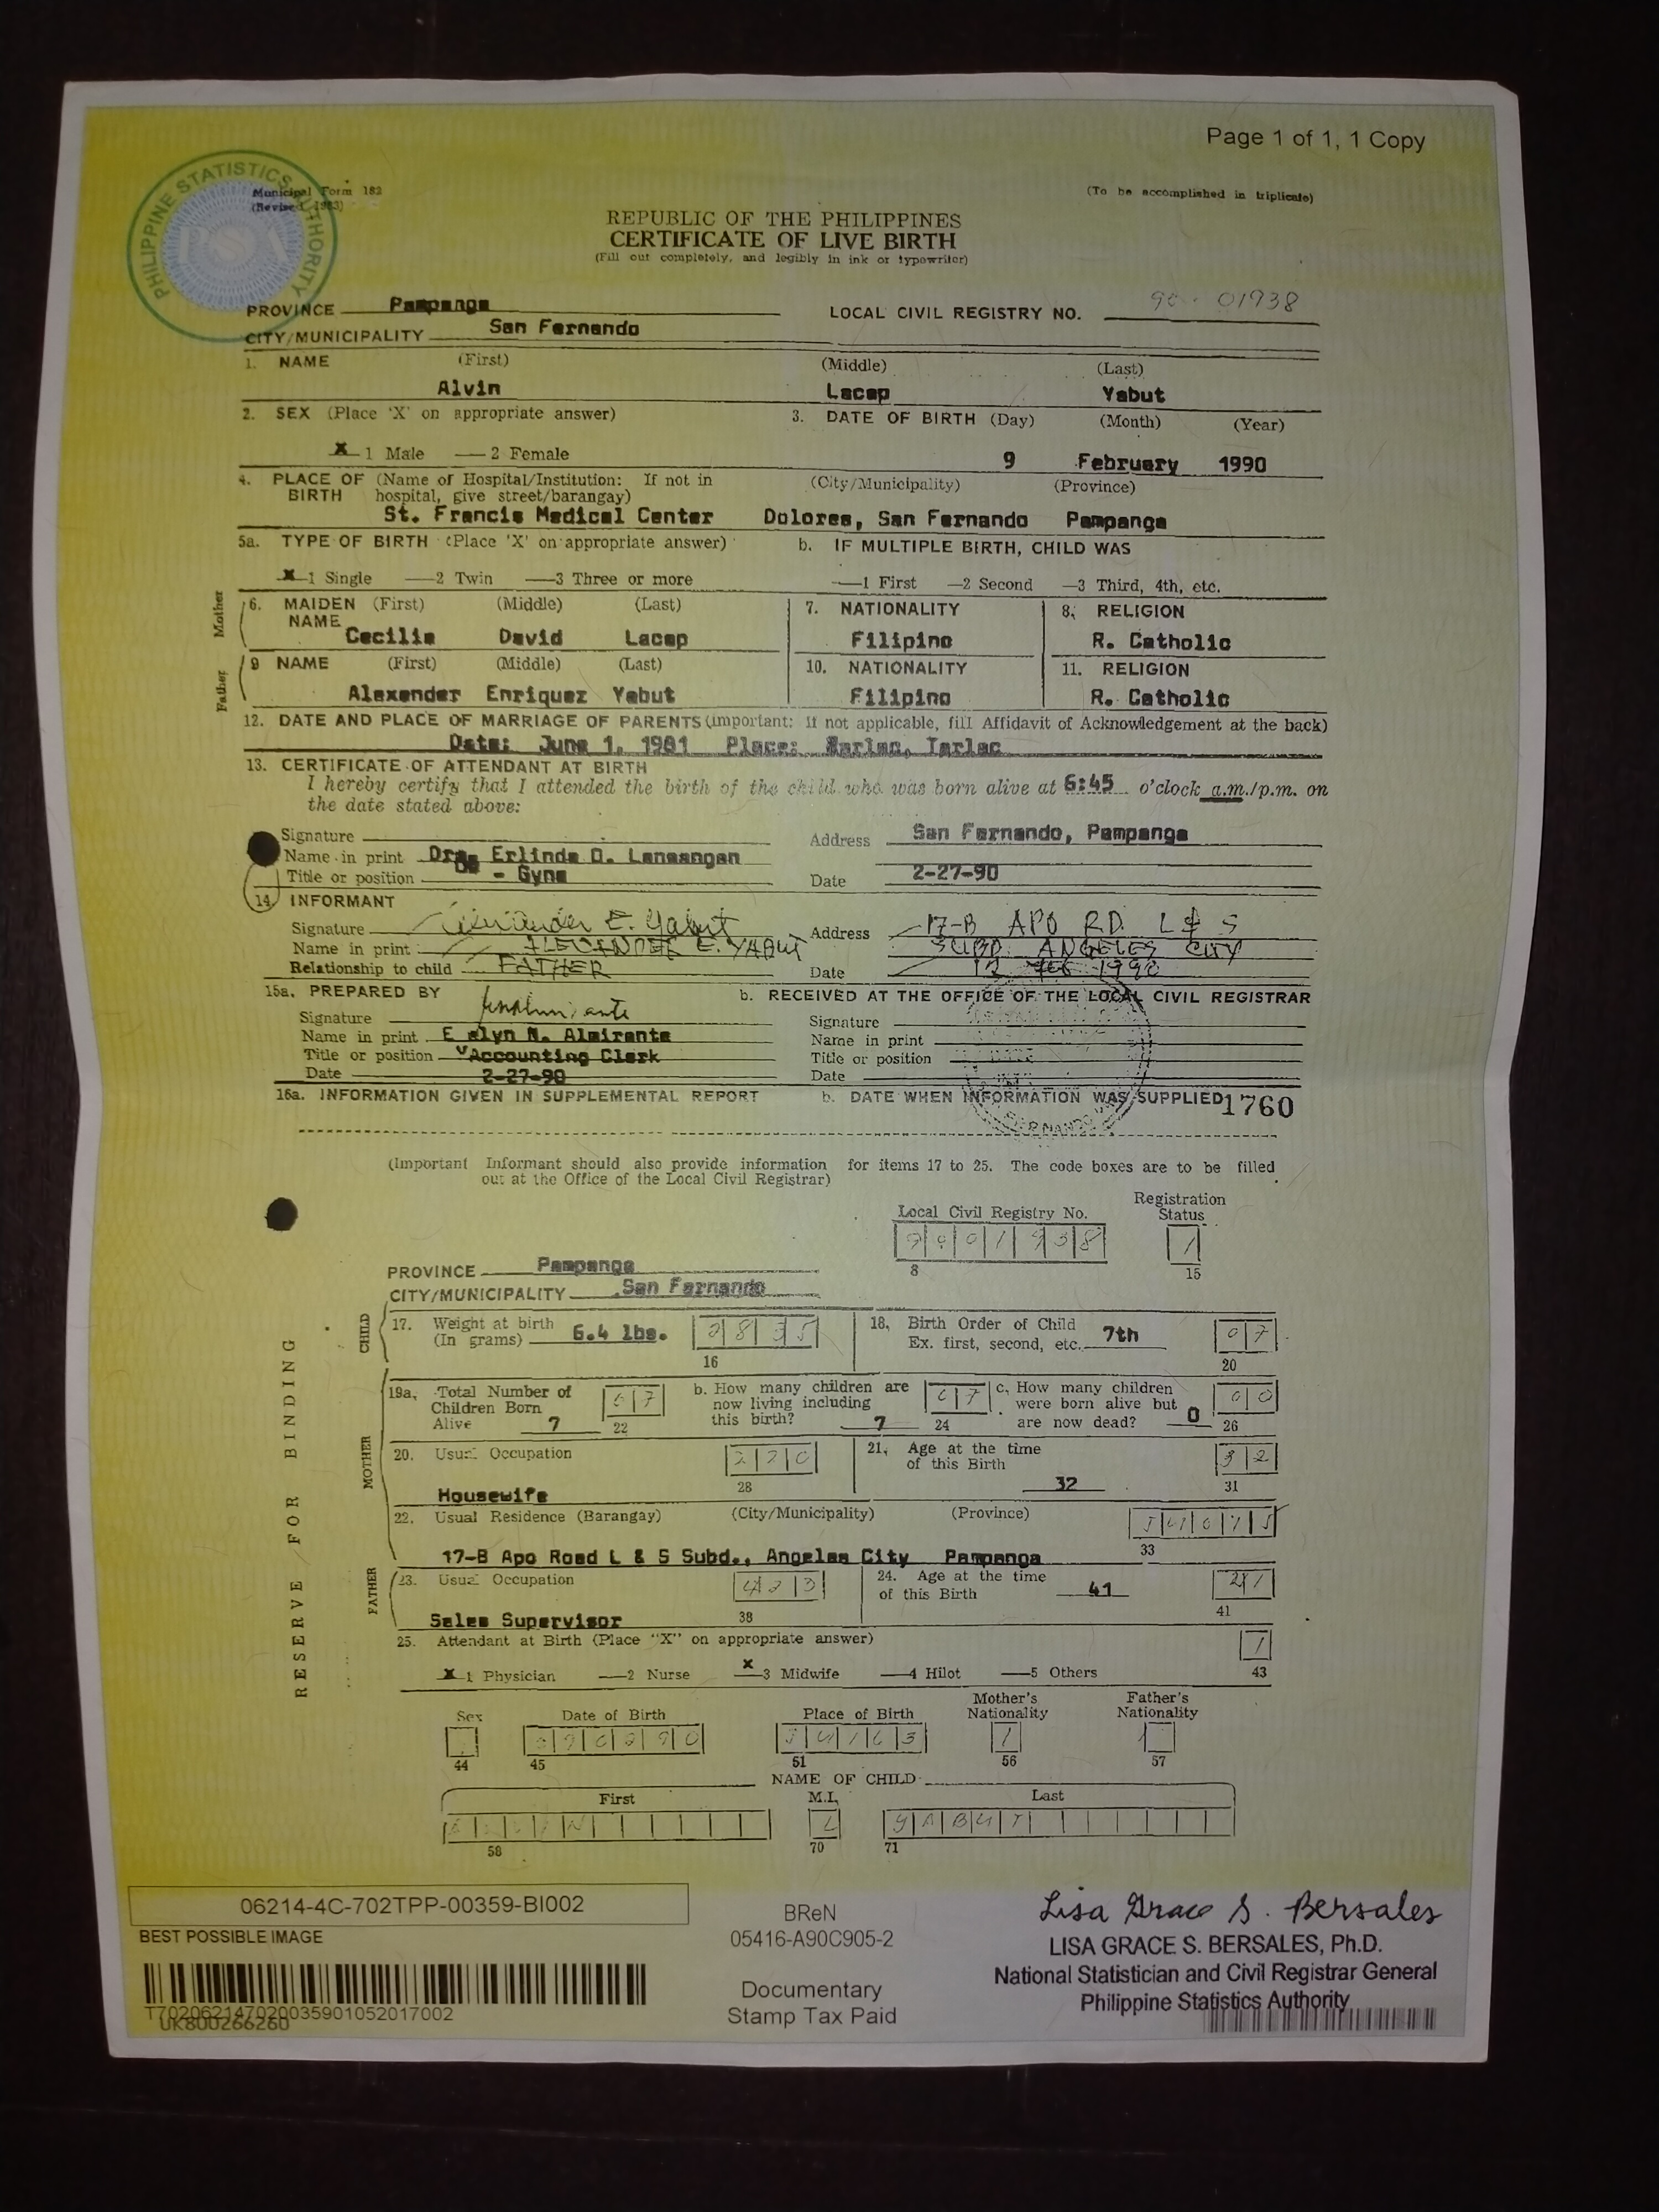 Page 1 of 1, 1 Copy
PHILIPPINE STATISTICS AUTHORITY
PSA
Municipal Form 182 (To be accomplished in triplicate)
(Revised 1983)
REPUBLIC OF THE PHILIPPINES
CERTIFICATE OF LIVE BIRTH
(Fill out completely, and legibly in ink or typewriter)
PROVINCE Pampanga LOCAL CIVIL REGISTRY NO. 90-01938
CITY/MUNICIPALITY San Fernando
1. NAME (First) (Middle) (Last)
Alvin Lacap Yabut
2. SEX (Place 'X' on appropriate answer) 3. DATE OF BIRTH (Day) (Month) (Year)
X 1 Male 2 Female 9 February 1990
4. PLACE OF (Name of Hospital/Institution: If not in (City/Municipality) (Province)
BIRTH hospital, give street/barangay)
St. Francis Medical Center Dolores, San Fernando Pampanga
5a. TYPE OF BIRTH (Place 'X' on appropriate answer) b. IF MULTIPLE BIRTH, CHILD WAS
X 1 Single 2 Twin 3 Three or more 1 First 2 Second 3 Third, 4th, etc.
Mother
6. MAIDEN (First) (Middle) (Last) 7. NATIONALITY 8. RELIGION
NAME
Cecilia David Lacap Filipino R. Catholic
Father
9 NAME (First) (Middle) (Last) 10. NATIONALITY 11. RELIGION
Alexander Enriquez Yabut Filipino R. Catholic
12. DATE AND PLACE OF MARRIAGE OF PARENTS (important: if not applicable, fill Affidavit of Acknowledgement at the back)
Date: June 1, 1981 Place: Tarlac
13. CERTIFICATE OF ATTENDANT AT BIRTH
I hereby certify that I attended the birth of the child who was born alive at 6:45 o'clock a.m./p.m. on
the date stated above:
Signature Address San Fernando, Pampanga
Name in print Dra. Erlinda O. Lansangan
Title or position - Gyne Date 2-27-90
14. INFORMANT
Signature Alexander E. Yabut Address 17-B APO RD. L & S
Name in print ALEXANDER E. YABUT SUBD. ANGELES CITY
Relationship to child FATHER Date 12 FEB 1990
15a. PREPARED BY b. RECEIVED AT THE OFFICE OF THE LOCAL CIVIL REGISTRAR
Signature Signature
Name in print Evelyn N. Almirante Name in print
Title or position Accounting Clerk Title or position
Date 2-27-90 Date
16a. INFORMATION GIVEN IN SUPPLEMENTAL REPORT b. DATE WHEN INFORMATION WAS SUPPLIED 1760
(Important Informant should also provide information for items 17 to 25. The code boxes are to be filled
out at the Office of the Local Civil Registrar)
Registration
Local Civil Registry No. Status
9001938 1
8 15
PROVINCE Pampanga
CITY/MUNICIPALITY San Fernando
RESERVE FOR BINDING
CHILD
17. Weight at birth 18. Birth Order of Child
(In grams) 6.4 lbs. 2835 Ex. first, second, etc. 7th 07
16 20
MOTHER
19a. Total Number of b. How many children are c. How many children
Children Born 07 now living including 07 were born alive but 00
Alive 7 22 this birth? 7 24 are now dead? 0 26
20. Usual Occupation 220 21. Age at the time 32
of this Birth
28 32 31
Housewife
22. Usual Residence (Barangay) (City/Municipality) (Province)
33
17-B Apo Road L & S Subd., Angeles City Pampanga
FATHER
23. Usual Occupation 423 24. Age at the time
of this Birth 41
38 41
Sales Supervisor
25. Attendant at Birth (Place "X" on appropriate answer) 1
X 1 Physician 2 Nurse X 3 Midwife 4 Hilot 5 Others 43
Mother's Father's
Sex Date of Birth Place of Birth Nationality Nationality
090290 1
44 45 51 56 57
NAME OF CHILD
First M.I. Last
ALVIN L YABUT
58 70 71
06214-4C-702TPP-00359-BI002
BEST POSSIBLE IMAGE
T702062147020035901052017002
UK800266260
BReN
05416-A90C905-2
Documentary
Stamp Tax Paid
Lisa Grace S. Bersales
LISA GRACE S. BERSALES, Ph.D.
National Statistician and Civil Registrar General
Philippine Statistics Authority